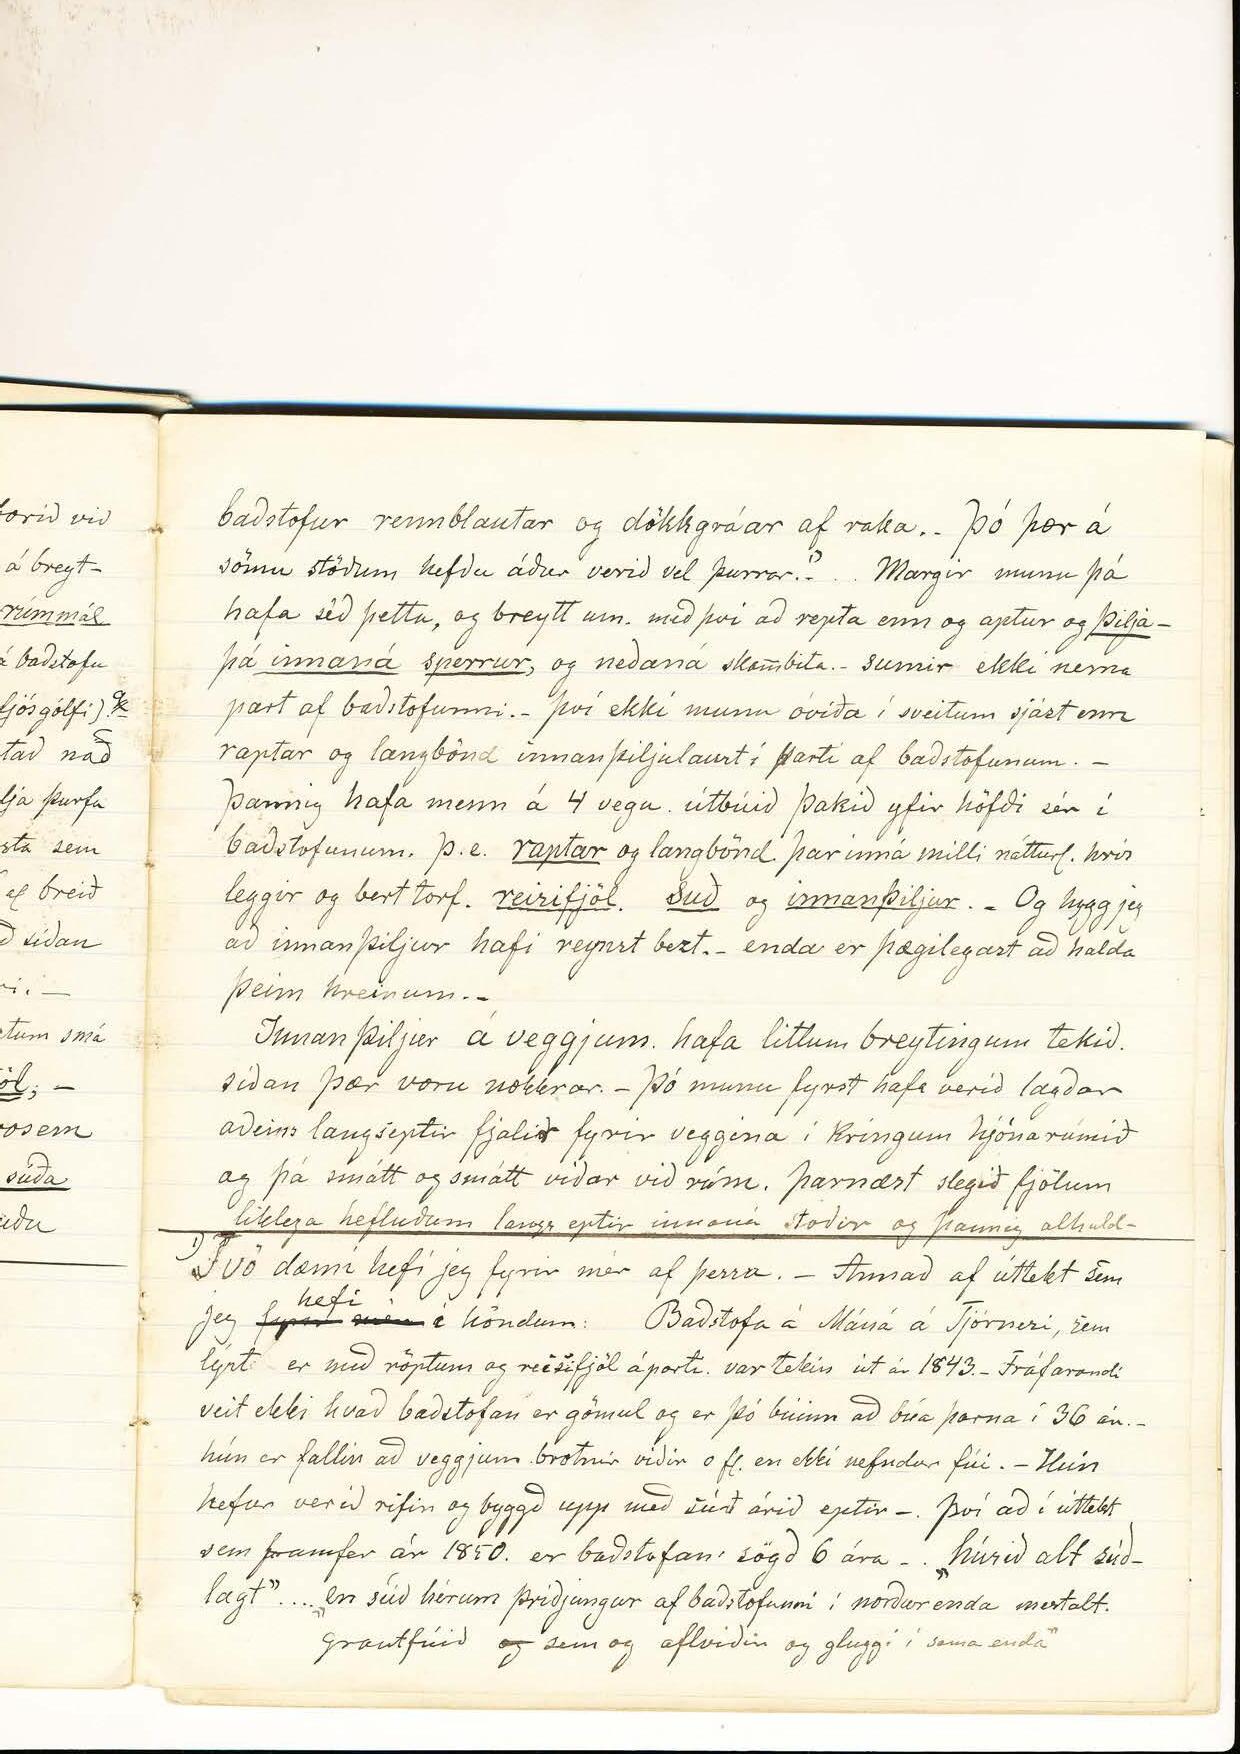 borið við
á breyt-
rúmmál
á baðstofu
fjósgólfi)
tað nað
lja þurfa
sta sem
ef breið
ð síðan
ri. —
ctum smá
öl; —
rosem
súða
uðu
baðstofur rennblautar og dökkgráar af raka.. Þó þær á
sömu stöðum hefðu áður verið vel þurrar.- 1) . Margir munu þá
hafa séð þetta, og breytt um. með því að repta enn og aptur og þilja-
þá innaná sperrur, og neðaná skambita.- sumir ekki nema
part af baðstofunni.- því ekki munu óvíða í sveitum sjást enn
raptar og langbönd innanþiljulaust í parti af baðstofunum. -
Þannig hafa menn á 4 vegu. útbúið þakið yfir höfði sér í
baðstofunum. þ.e. raptar og langbönd þar inná milli nátturl. hrís
leggir og bert torf. reisifjöl. súð og innanþiljur. - Og hygg jeg
að innanþiljur hafi reynst bezt.- enda er þægilegast að halda
þeim hreinum.-
Innanþiljur á veggjum. hafa litlum breytingum tekið.
síðan þær voru nokkrar. - Þó munu fyrst hafa verið lagðar
aðeins langseptir fjalir fyrir veggina í kringum hjónarúmið
og þá smátt og smátt víðar við rúm. þarnæst slegið fjölum
líklega hefluðum langs eptir innaná stoðir og þannig alhuld-
1) Tvö dæmi hefi jeg fyrir mér af þessa. - Annað af úttekt sem
jeg fyrir mér hefi í höndum: Baðstofa á Máná á Tjörnesi, sem
lýst er með röptum og reisifjöl á porti. var tekin út ár 1843.- Fráfarandi
veit ekki hvað baðstofan er gömul og er þó búinn að búa þarna í 36 ár.-
hún er fallin að veggjum brotnir viðir o fl. en ekki nefndur fúi. - Hún
hefur verið rifin og byggð upp með súð árið eptir -. Því að í úttekt
sem framfer ár 1850. er baðstofan sögð 6 ára - . „húsið alt súð-
lagt”.... „en súð hérum þriðjungur af baðstofunni í norðurenda mestalt.
grautfúið og sem og aflviðir og gluggi í sama enda”